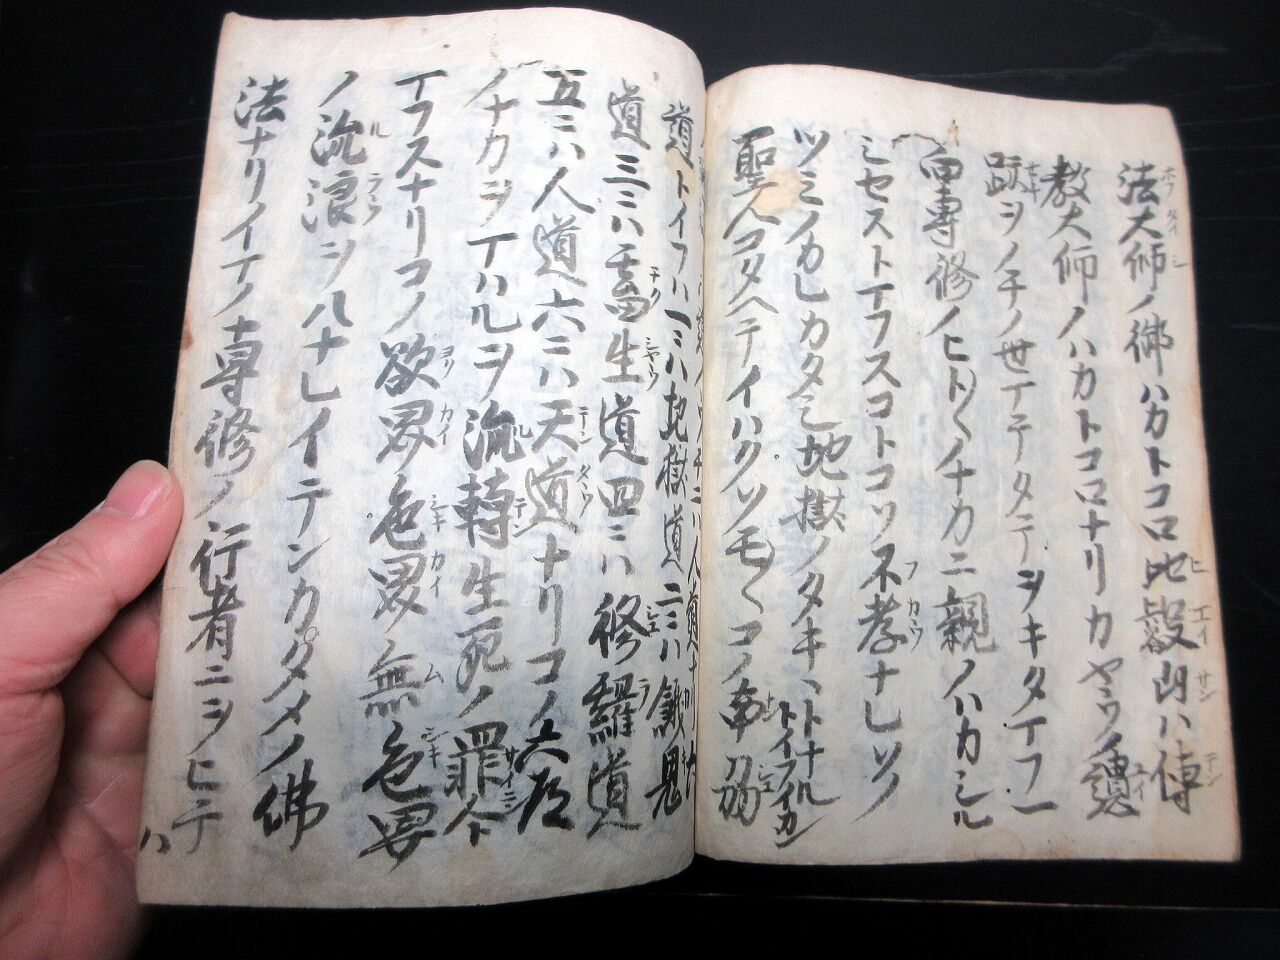 法大師ノ御ハカトコロ比叡山ハ傳
教大師ノハカトコロナリカヤウノ
跡ヲノチノ世マテタテヲキタマフ一
向専修ノヒト〱チカニ親ノハカシル
シセストマフスコトコソ不孝ナレソノ
ツミノカレカタシ地獄ノタキヽトナル
トイフイカン
聖人コタヘテイハクソモ〱コノ
道トイフハ一ニハ地獄道二ニハ餓鬼
道三ニハ畜生道四ニハ修羅道
五ニハ人道六ニハ天道ナリコノ六道
ノナカヲマハルヲ流轉生死ノ罪人ト
マフスナリコノ欲界色界無色界
ノ流浪ヲハナレイテンカタメノ佛
法ナリイマノ専修ノ行者ニヲヒテ
ハ